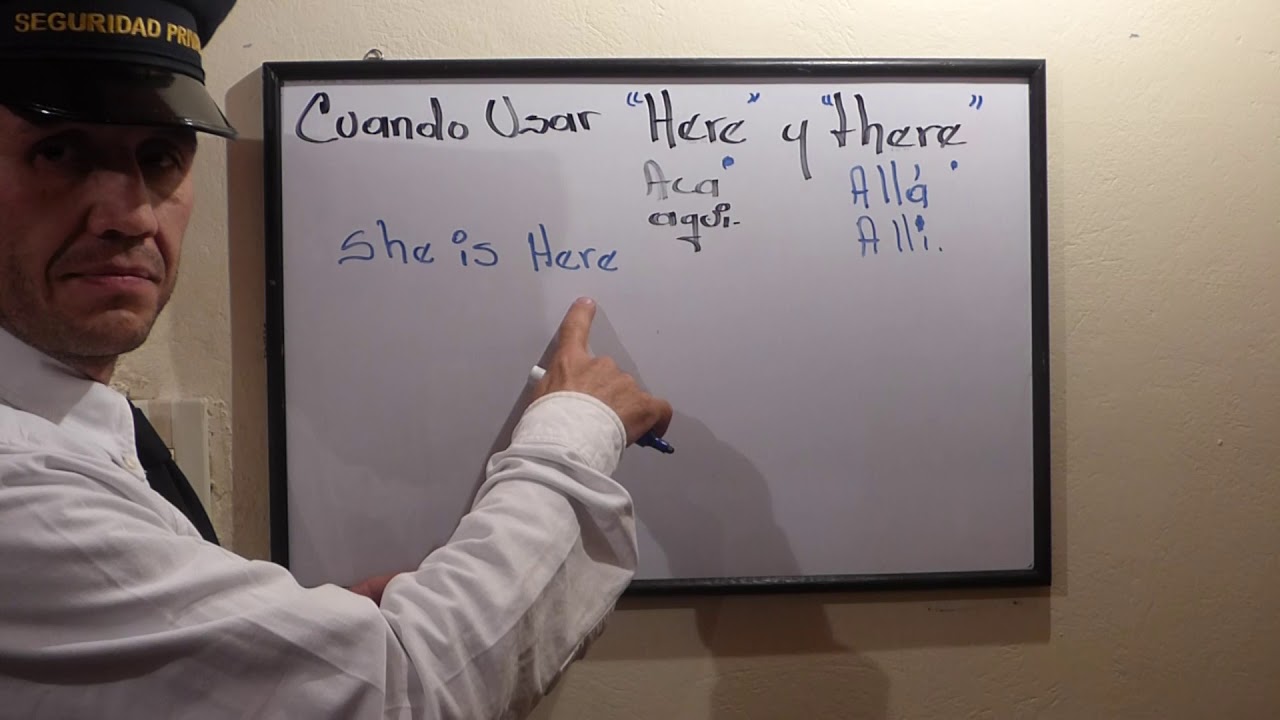 SEGURIDAD PRIV
Cuando Usar "Here" y "there"
Aca Allá
aqui. Alli.
She is Here